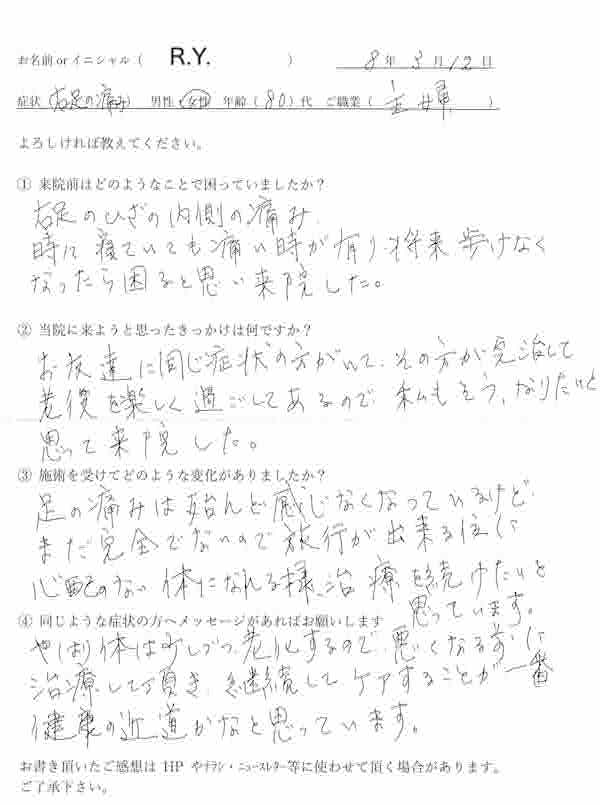 お名前 or イニシャル（ R.Y. ） 8年 3月 12日
症状（右足の痛み） 男性 女性 年齢（80）代 ご職業（ 主婦 ）
よろしければ教えてください。
① 来院前はどのようなことで困っていましたか？
右足のひざの内側の痛み
時に寝ていても痛い時が有り、将来歩けなく
なったら困ると思い来院した。
② 当院に来ようと思ったきっかけは何ですか？
お友達に同じ症状の方がいて、その方が完治して
老後を楽しく過ごしてあるので、私もそうなりたいと
思って来院した。
③ 施術を受けてどのような変化がありましたか？
足の痛みは殆んど感じなくなっているけど、
まだ完全でないので旅行が出来る位に
心配のない体になれる様、治療を続けたいと
思っています。
④ 同じような症状の方へメッセージがあればお願いします
やはり体は少しづつ老化するので、悪くなる前に
治療して頂き、継続してケアすることが一番
健康の近道かなと思っています。
お書き頂いたご感想は HP やチラシ・ニュースレター等に使わせて頂く場合があります。
ご了承下さい。